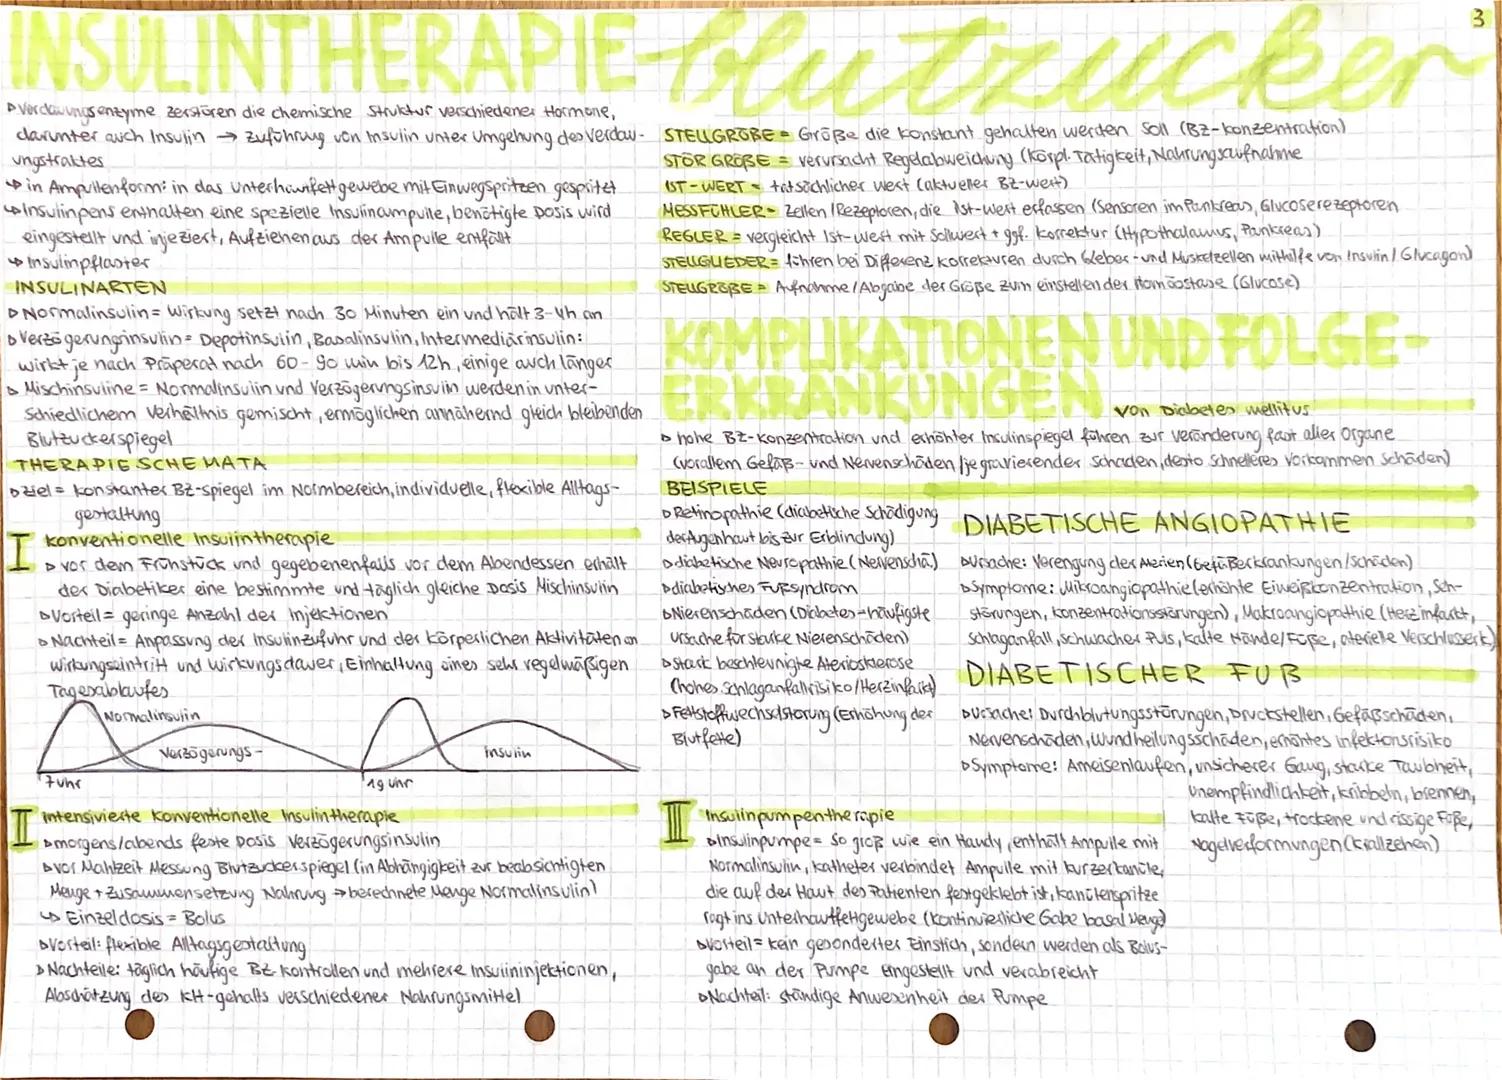 3
INSULINTHERAPIE - blutzucker
▹ Verdauungsenzyme zerstören die chemische Struktur verschiedener Hormone,
darunter auch Insulin → Zuführung von Insulin unter Umgehung des Verdau-
ungstraktes
↳ in Ampullenform: in das Unterhautfettgewebe mit Einwegspritzen gespritzt
↳ Insulinpens enthalten eine spezielle Insulinampulle, benötigte Dosis wird
eingestellt und injeziert, Aufziehen aus der Ampulle entfällt
↳ Insulinpflaster
INSULINARTEN
▹ Normalinsulin = Wirkung setzt nach 30 Minuten ein und hält 3-4h an
▹ Verzögerungsinsulin = Depotinsulin, Basalinsulin, Intermediärinsulin:
wirkt je nach Präperat nach 60-90 min bis 12h, einige auch länger
▹ Mischinsuline = Normalinsulin und Verzögerungsinsulin werden in unter-
schiedlichem Verhältnis gemischt, ermöglichen annähernd gleich bleibenden
Blutzuckerspiegel
THERAPIESCHEMATA
▹ Ziel = konstanter BZ-spiegel im Normbereich, individuelle, flexible Alltags-
gestaltung
I konventionelle Insulintherapie
▹ vor dem Frühstück und gegebenenfalls vor dem Abendessen erhält
der Diabetiker eine bestimmte und täglich gleiche Dosis Mischinsulin
▹ Vorteil = geringe Anzahl der Injektionen
▹ Nachteil = Anpassung der Insulinzufuhr und der körperlichen Aktivitäten an
wirkungseintritt und wirkungsdauer, Einhaltung eines sehr regelmäßigen
Tagesablaufes
Normalinsulin
Verzögerungs-
insulin
7 uhr
19 uhr
II intensivierte konventionelle Insulintherapie
▹ morgens/abends feste Dosis Verzögerungsinsulin
▹ vor Mahlzeit Messung Blutzuckerspiegel (in Abhängigkeit zur beabsichtigten
Menge + Zusammensetzung Nahrung → berechnete Menge Normalinsulin)
↳ Einzeldosis = Bolus
▹ Vorteil: flexible Alltagsgestaltung
▹ Nachteile: täglich häufige BZ-kontrollen und mehrere Insulininjektionen,
Abschätzung des KH-gehalts verschiedener Nahrungsmittel
STELLGRÖßE = Größe die konstant gehalten werden soll (BZ-Konzentration)
STÖRGRÖßE = verursacht Regelabweichung (körpl. Tätigkeit, Nahrungsaufnahme
IST-WERT = tatsächlicher Wert (aktueller BZ-wert)
MESSFÜHLER = Zellen/Rezeptoren, die Ist-Wert erfassen (Sensoren im Pankreas, Glucoserezeptoren
REGLER = vergleicht Ist-Wert mit Sollwert + ggf. Korrektur (Hypothalamus, Pankreas)
STELLGLIEDER = führen bei Differenz Korrekturen durch (Leber- und Muskelzellen mithilfe von Insulin/Glucagon)
STELLGRÖßE = Aufnahme/Abgabe der Größe zum einstellen der Homöostase (Glucose)
KOMPLIKATIONEN UND FOLGE-
ERKRANKUNGEN von Diabetes mellitus
▹ hohe BZ-Konzentration und erhöhter Insulinspiegel führen zur Veränderung fast aller Organe
(vorallem Gefäß- und Nervenschäden/je gravierender Schaden, desto schnelleres Vorkommen Schäden)
BEISPIELE
▹ Retinopathie (diabetische Schädigung
der Augenhaut bis zur Erblindung)
▹ diabetische Neuropathie (Nervenschä.)
▹ diabetisches Fußsyndrom
▹ Nierenschäden (Diabetes = häufigste
Ursache für starke Nierenschäden)
▹ stark beschleunigte Ateriosklerose
(hohes Schlaganfallrisiko/Herzinfarkt)
▹ Fettstoffwechselstörung (Erhöhung der
Blutfette)
DIABETISCHE ANGIOPATHIE
▹ Ursache: Verengung der Aterien (Gefäßerkrankungen/schäden)
▹ Symptome: Mikroangiopathie (erhöhte Eiweißkonzentration, Seh-
störungen, konzentrationsstörungen), Makroangiopathie (Herzinfarkt,
schlaganfall, schwacher Puls, kalte Hände/Füße, aterielle Verschlusserk.)
DIABETISCHER FUß
▹ Ursache: Durchblutungsstörungen, Druckstellen, Gefäßschäden,
Nervenschäden, Wundheilungsschäden, erhöhtes Infektonsrisiko
▹ Symptome: Ameisenlaufen, unsicherer Gang, starke Taubheit,
Unempfindlichkeit, kribbeln, brennen,
kalte Füße, trockene und rissige Füße,
Nagelverformungen (krallzehen)
III Insulinpumpentherapie
▹ Insulinpumpe = so groß wie ein Handy, enthält Ampulle mit
Normalinsulin, Katheter verbindet Ampulle mit kurzer kanüle,
die auf der Haut des Patienten festgeklebt ist, kanülenspritze
ragt ins Unterhautfettgewebe (kontinuierliche Gabe basal Menge)
▹ Vorteil = kein gesonderter Einstich, sondern werden als Bolus-
gabe an der Pumpe eingestellt und verabreicht
▹ Nachteil: ständige Anwesenheit der Pumpe